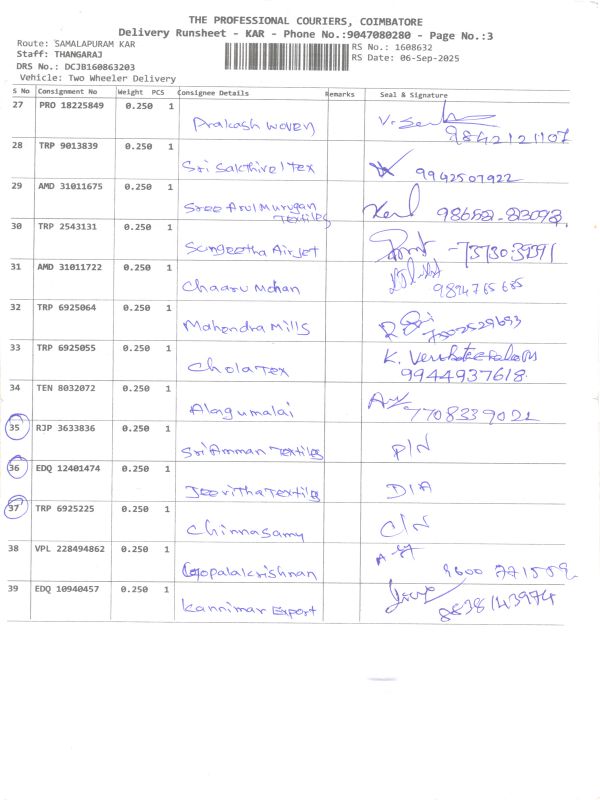 THE PROFESSIONAL COURIERS, COIMBATORE
Delivery Runsheet - KAR - Phone No.:9047080280 - Page No.:3
Route: SAMALAPURAM KAR
Staff: THANGARAJ
DRS No.: DCJB160863203
Vehicle: Two Wheeler Delivery
RS No.: 1608632
RS Date: 06-Sep-2025
S No Consignment No Weight PCS Consignee Details Remarks Seal & Signature
27 PRO 18225849 0.250 1 Prakash Woven 9842121107
28 TRP 9013839 0.250 1 Sri Sakthivel Tex 9942507922
29 AMD 31011675 0.250 1 Sree Arul Murugan Textiles
30 TRP 2543131 0.250 1 Sungeetha Airjet
31 AMD 31011722 0.250 1 Chaaru Mohan
32 TRP 6925064 0.250 1 Mahendra Mills
33 TRP 6925055 0.250 1 Chola Tex 9944937618
34 TEN 8032072 0.250 1 Alagumalai 7708339021
35 RJP 3633836 0.250 1 Sri Amman Textiles P/N
36 EDQ 12401474 0.250 1 Jeevitha Textiles D/A
37 TRP 6925225 0.250 1 Chinnasamy C/N
38 VPL 228494862 0.250 1 Gopalakrishnan
39 EDQ 10940457 0.250 1 Kannimar Export 8838143974